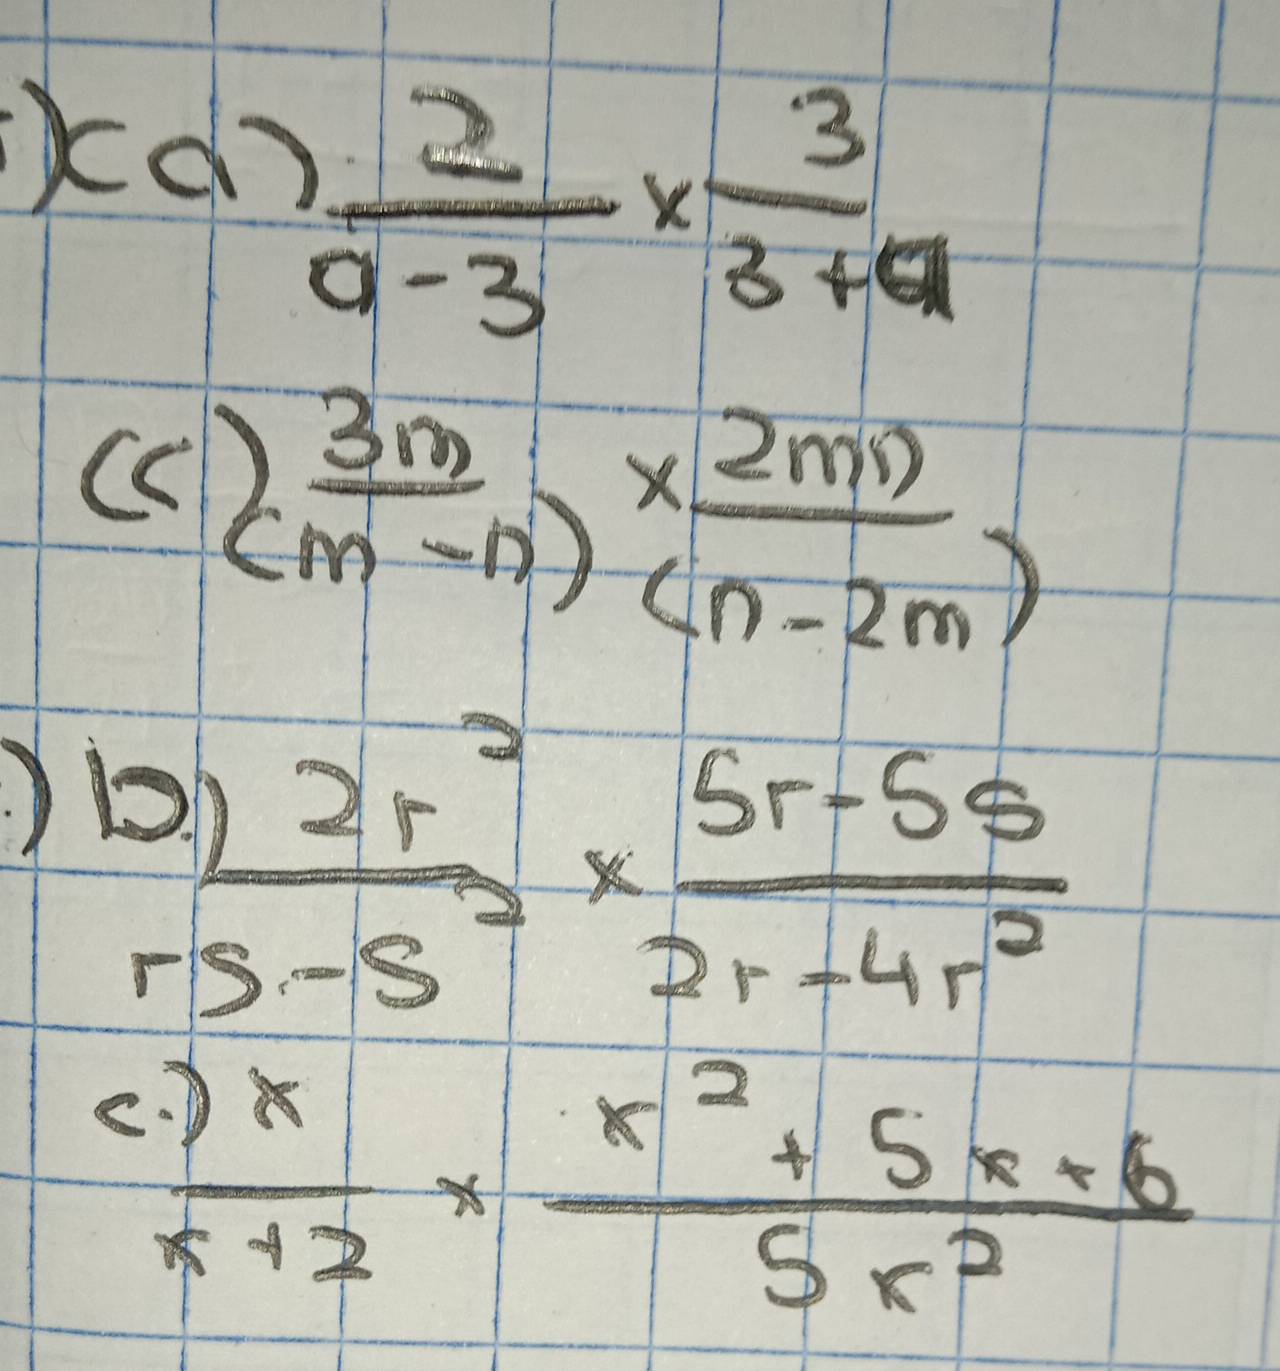 )(a) 2/(a-3) × 3/(3+a)
(c) 3m/(m-n) × 2mn/(n-2m)
) b.) 2r²/(rs-s²) × (5r-5s)/(2r-4r²)
c.) x/(x+2) × (x²+5x+6)/(5x²)